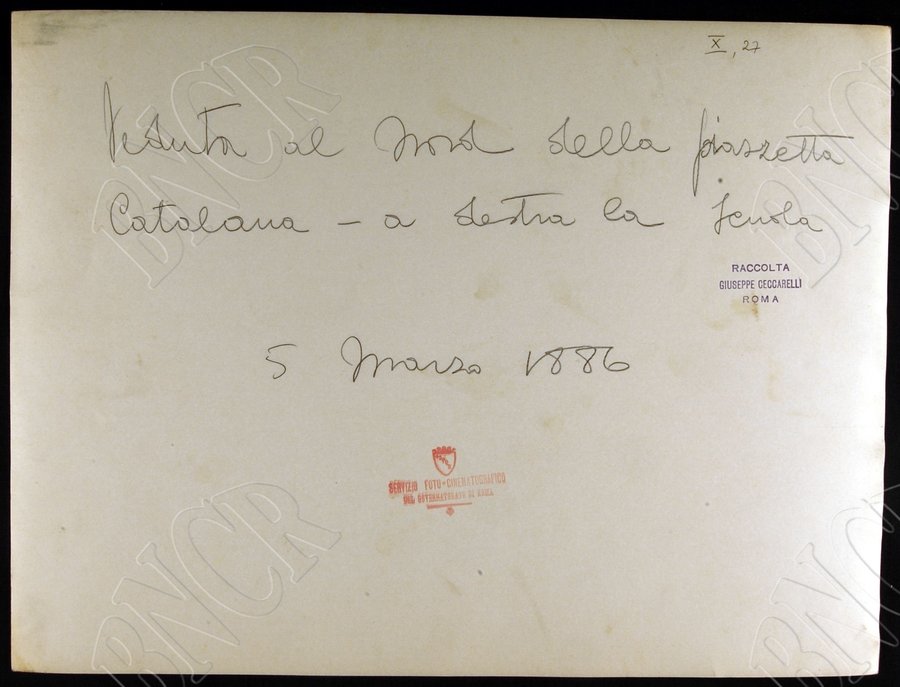 X, 27
Veduta al Nord della piazzetta
Catalana - a destra la Scuola
RACCOLTA
GIUSEPPE CECCARELLI
ROMA
5 Marzo 1886
SERVIZIO FOTO-CINEMATOGRAFICO
DEL GOVERNATORATO DI ROMA
BNCR
BNCR
BNCR
BNCR